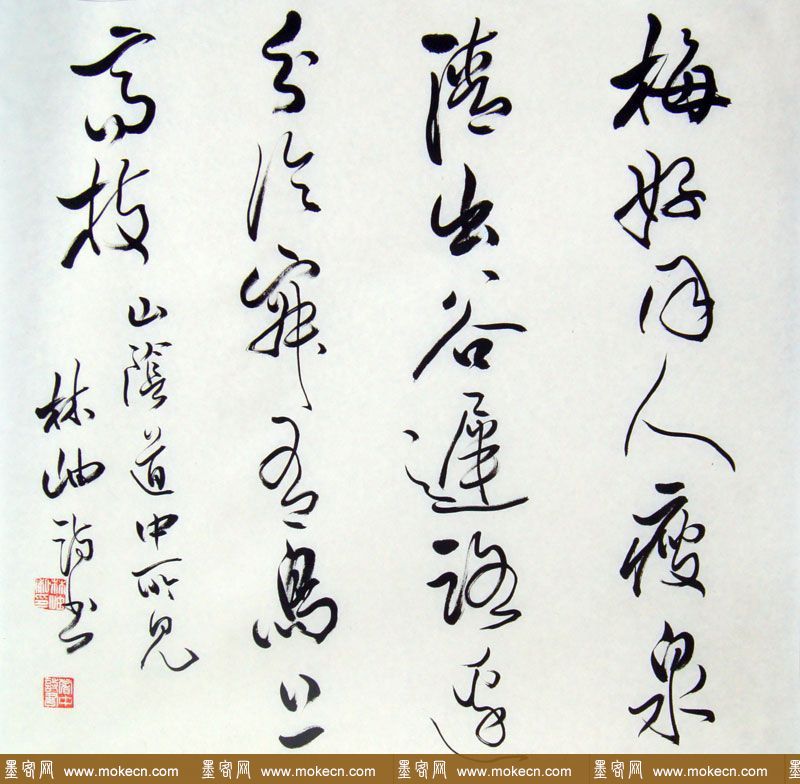 梅好同人瘦泉
清出谷遲路
分冷寂有鳥上
高枝
山陰道中所見
林岫詩书
墨客网 www.mokecn.com 墨客网 www.mokecn.com 墨客网 www.mokecn.com 墨客网 www.mokecn.com